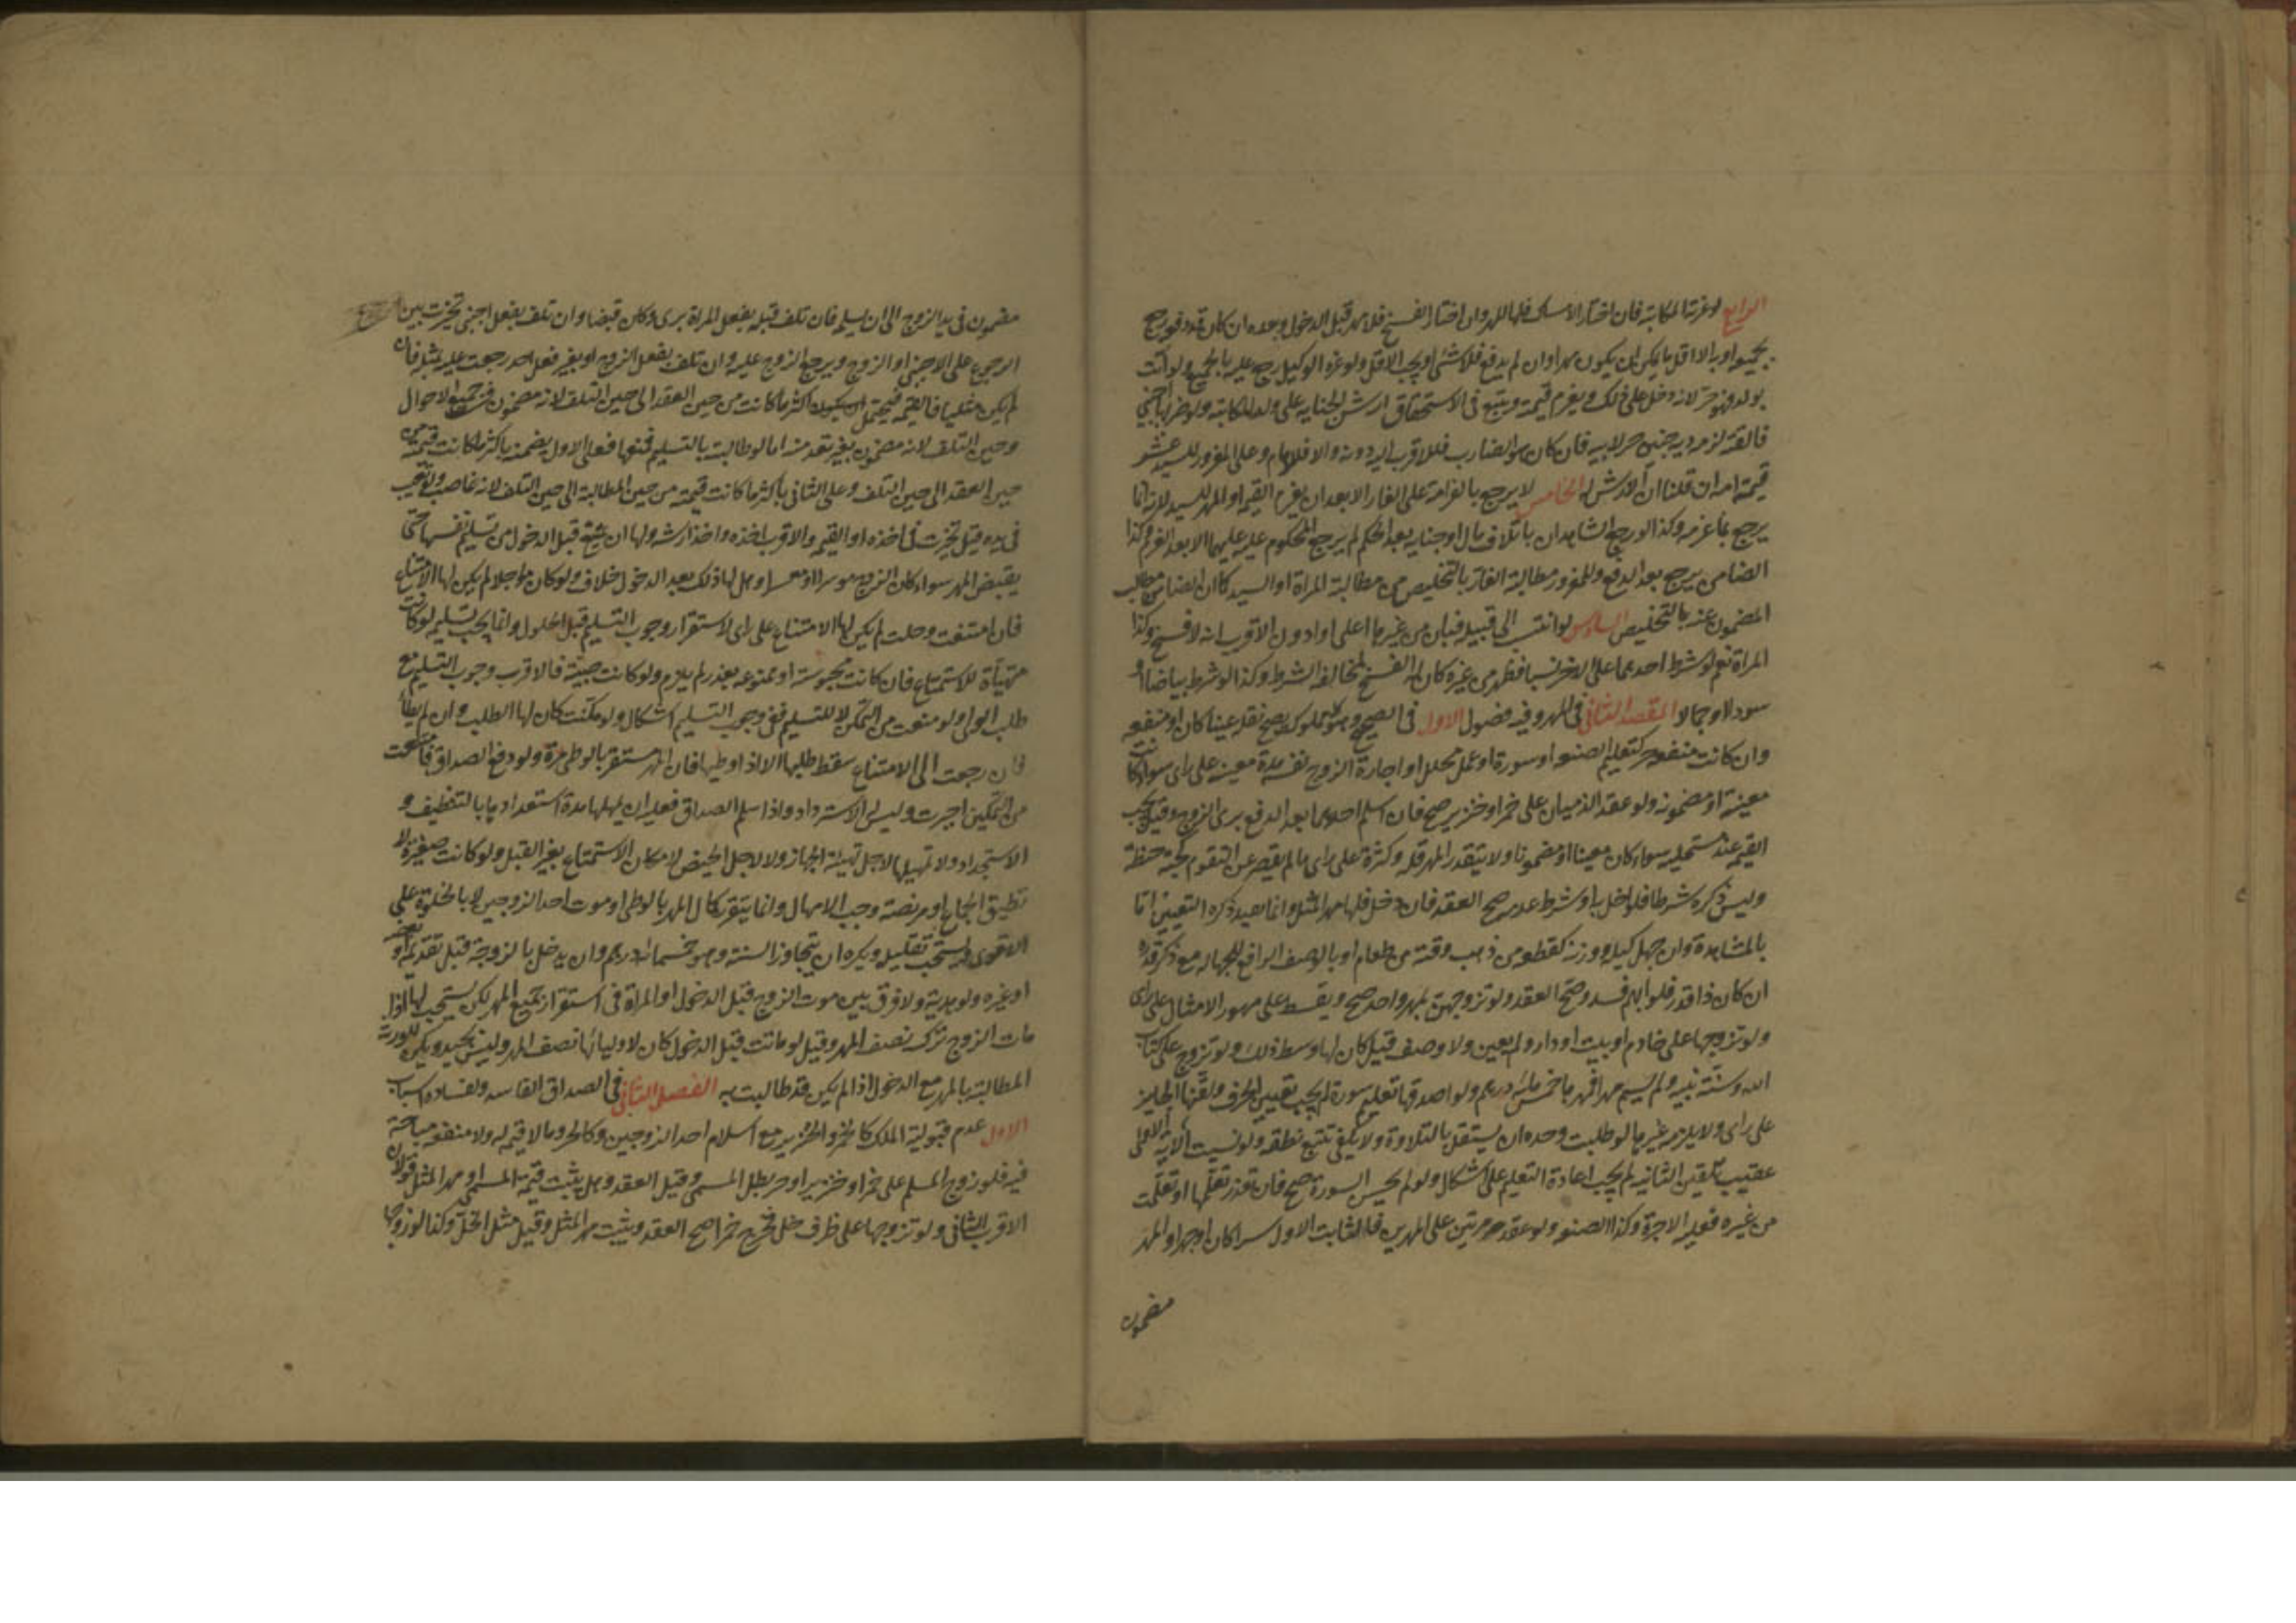 الرابع لو غرته المكاتبة فان اختار الامساك فلها المهر وان اختار الفسخ فلا مهر قبل الدخول وبعده ان كان قد دفعه رجع
بجميعه او به الا اقل ما يمكن ان يكون مهرا وان لم يدفع فلا شئ او يجب الاقل ولو غره الوكيل رجع عليه بالجميع ولو اتت
بولد فهو حر لانه دخل على ذلك ويغرم قيمته ويتبع في الاستحقاق ارش الجناية على ولد المكاتبة ولو ضربها اجنبي
فالقته لزمه دية جنين حر لابيه فان كان هو الضارب فللاقرب اليه دونه والا فللامام وعلى المغرور للسيد عشر
قيمة امه ان قلنا ان الارش له الخامس لا يرجع بالغرامة على الغار الا بعد ان يغرم القيمة او المهر للسيد لانه انما
يرجع بما غرمه وكذا لو رجع الشاهدان باتلاف مال او جناية بعد الحكم لم يرجع المحكوم عليه عليهما الا بعد الغرم وكذا
الضامن يرجع بعد الدفع وللمغرور مطالبة الغار بالتخليص من مطالبة المراة او السيد كما ان الضامن يطالب
المضمون عنه بالتخليص السادس لو انتسب الى قبيلة فبان من غيرها اعلى او ادون الاقرب انه لا فسخ وكذا
المراة نعم لو شرط احدهما على الاخر نسبا فظهر من غيره كان له الفسخ لمخالفة الشرط وكذا لو شرط بياضا او
سوادا او جمالا المقصد الثاني في المهر وفيه فصول الاول في الصحيح وهو كل مملوك يصح نقله عينا كان او منفعه
وان كانت منفعه حر كتعليم الصنعه او سورة او عمل محلل او اجارة الزوج نفسه مدة معينه على راى سواء كانت
معينة او مضمونه ولو عقد الذميان على خمر او خنزير صح فان اسلم احدهما بعد الدفع برى الزوج وقبله تجب
القيمه عند مستحليه سواء كان معينا او مضمونا ولا يتقدر المهر قلة وكثرة على راى ما لم يقصر عن التقوم كحبة حنطة
وليس ذكره شرطا فلو اخل به او شرط عدمه صح العقد فان دخل فلها مهر المثل وانما يفيد ذكره التعيين اما
بالمشاهدة وان جهل كيله او وزنه كقطعه من ذهب وقبة من طعام او بالوصف الرافع للجهاله مع ذكر قدره
ان كان ذا قدر فلو ابهم فسد وصح العقد ولو تزوجهن بمهر واحد صح ويقسط على مهور الامثال على راى
ولو تزوجها على خادم او بيت او دار ولم يعين ولا وصف قيل كان لها وسط ذلك ولو تزوج على كتاب
الله وسنة نبيه ولم يسم مهرا فمهرها خمس مائة درهم ولو اصدقها تعليم سورة لم يجب تعيين الحرف ولقنها الجايز
على راى ولا يلزمه غيرها لو طلبت وحده ان يستقل بالتلاوة ولا يكفي تتبع نطقه ولو نسيت الاية الاولى
عقيب تلقين الثانيه لم يجب اعادة التعليم على اشكال ولو لم يحسن السورة صح فان تعذر تعلمها او تعلمت
من غيره فعليه الاجرة وكذا الصنعه ولو عقد مرتين على مهرين فالثابت الاول سرا كان او جهرا والمهر
مضمون
مضمون في يد الزوج الى ان يسلمه فان تلف قبله بفعل المراة برى وكان قبضا وان تلف بفعل اجنبي تخيرت بين
الرجوع على الاجنبي او الزوج ويرجع الزوج عليه وان تلف بفعل الزوج او بغير فعل احد رجعت عليه بمثله فان
لم يكن مثليا فالقيمه فيحتمل ان يكون اكثر ما كانت من حين العقد الى حين التلف لانه مضمون في جميع الاحوال
وحين التلف لانه مضمون بغير تعد منه اما لو طالبته بالتسليم فمنعها فعلى الاول يضمنه باكثر ما كانت قيمته من
حين العقد الى حين التلف وعلى الثاني باكثر ما كانت قيمته من حين المطالبة الى حين التلف لانه غاصب ولو تعيب
في يده قيل تخيرت في اخذه او القيمه والاقرب اخذه واخذ ارشه ولها ان تمتنع قبل الدخول من تسليم نفسها حتى
يقبض المهر سواء كان الزوج موسرا او معسرا وهل لها ذلك بعد الدخول خلاف ولو كان مؤجلا لم يكن لها الامتناع
فان امتنعت وحلت لم يكن لها الامتناع على راى لاستقرار وجوب التسليم قبل الحلول وانما يجب تسليمه لو كانت
مهيأة للاستمتاع فان كانت محبوسه او ممنوعه بعذر لم يلزم ولو كانت صبية فالاقرب وجوب التسليم مع
طلب الولى ولو منعت من التمكن لا للتسليم ففى وجوب التسليم اشكال ولو مكنت كان لها الطلب وان لم يطأ
فان رجعت الى الامتناع سقط طلبها الا اذا وطيها فان المهر يستقر بالوطى مرة ولو دفع الصداق فامتنعت
من التمكين اجبرت وليس له الاسترداد واذا سلم الصداق فعليه ان يمهلها مدة استعدادها بالتنظيف و
الاستحداد ولا تمهيلها لاجل تهيئة الجهاز ولا لاجل الحيض لامكان الاستمتاع بغير القبل ولو كانت صغيرة لا
تطيق الجماع او مريضة وجب الامهال وانما يتقرر كمال المهر بالوطى او موت احد الزوجين لا بالخلوة على
الاقوى ويستحب تقليله ويكره ان يتجاوز السنة وهو خمسمائة درهم وان يدخل بالزوجة قبل تقديمه او بعضه
او غيره ولو هدية ولا فرق بين موت الزوج قبل الدخول او المراة في استقرار جميع المهر لكن يستحب لها اذا
مات الزوج ترك نصف المهر وقيل لو ماتت قبل الدخول كان لاوليائها نصف المهر وليس بجيد ويكره للورثة
المطالبة بالمهر مع الدخول اذا لم يكن قد طالبت به الفصل الثاني في الصداق الفاسد ولفساده اسباب
الاول عدم قبوليه الملك كالخمر والخنزير مع اسلام احد الزوجين وكالحر وما لا قيمه له ولا منفعه مباحة
فيه فلو زوج المسلم على خمر او خنزير او حر بطل المسمى وقيل العقد وهل يثبت قيمة المسمى او مهر المثل قولان
الاقرب الثاني ولو تزوجها على ظرف خل فخرج خمرا صح العقد ويثبت مهر المثل وقيل مثل الخل وكذا لو تزوجها